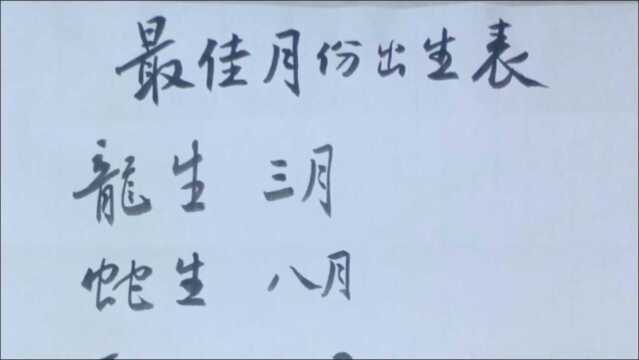 最佳月份出生表
龍生 三月
蛇生 八月